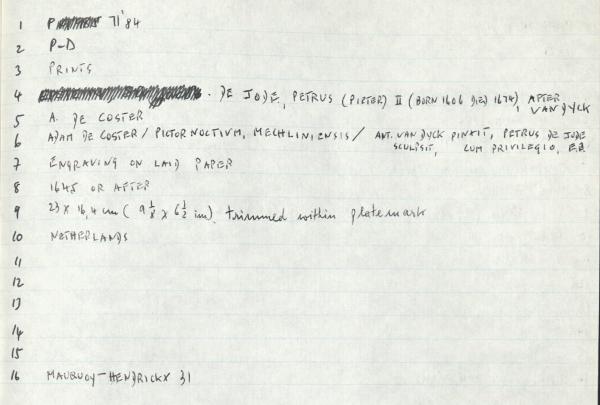 1 P 71'84
2 P-D
3 PRINTS
4 . DE JODE, PETRUS (PIETER) II (BORN 1606 DIED 1674) AFTER VAN DYCK
5 A. DE COSTER
6 ADAM DE COSTER / PICTOR NOCTIVM, MECHLINIENSIS / ANT. VAN DYCK PINXIT, PETRUS DE JODE
SCULPSIT, CUM PRIVILEGIO,
7 ENGRAVING ON LAID PAPER
8 1645 OR AFTER
9 23 x 16,4 cm ( 9 1/8 x 6 1/2 in) trimmed within platemark
10 NETHERLANDS
11
12
13
14
15
16 MAUQUOY-HENDRICKX 31